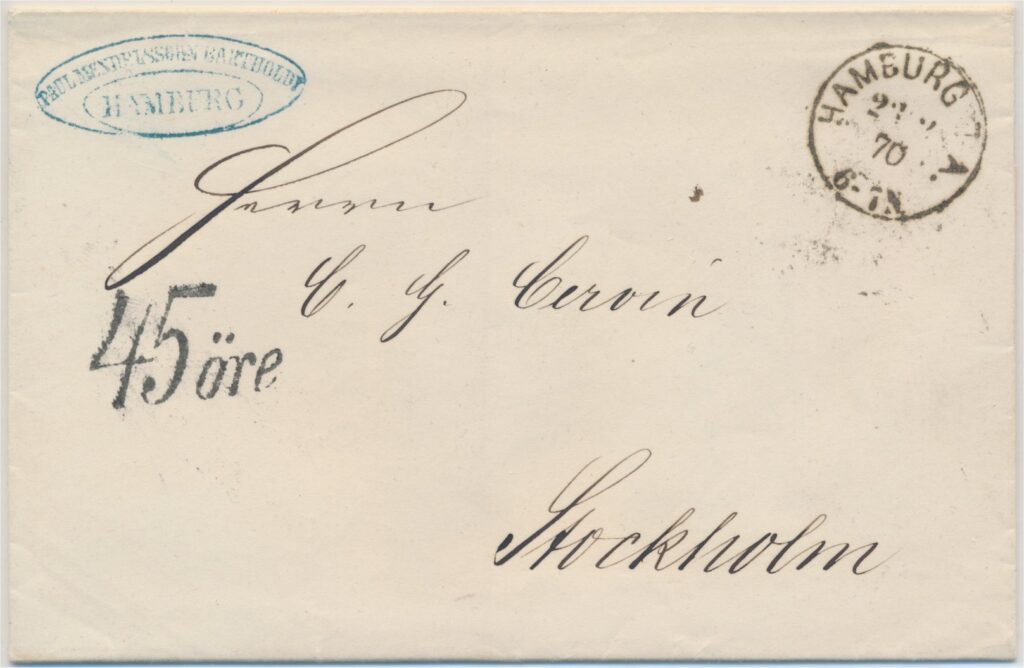 PAUL MENDELSSOHN BARTHOLDY
HAMBURG
HAMBURG A.
70
6-7N
Herrn
C. G. Cervin
45 öre
Stockholm